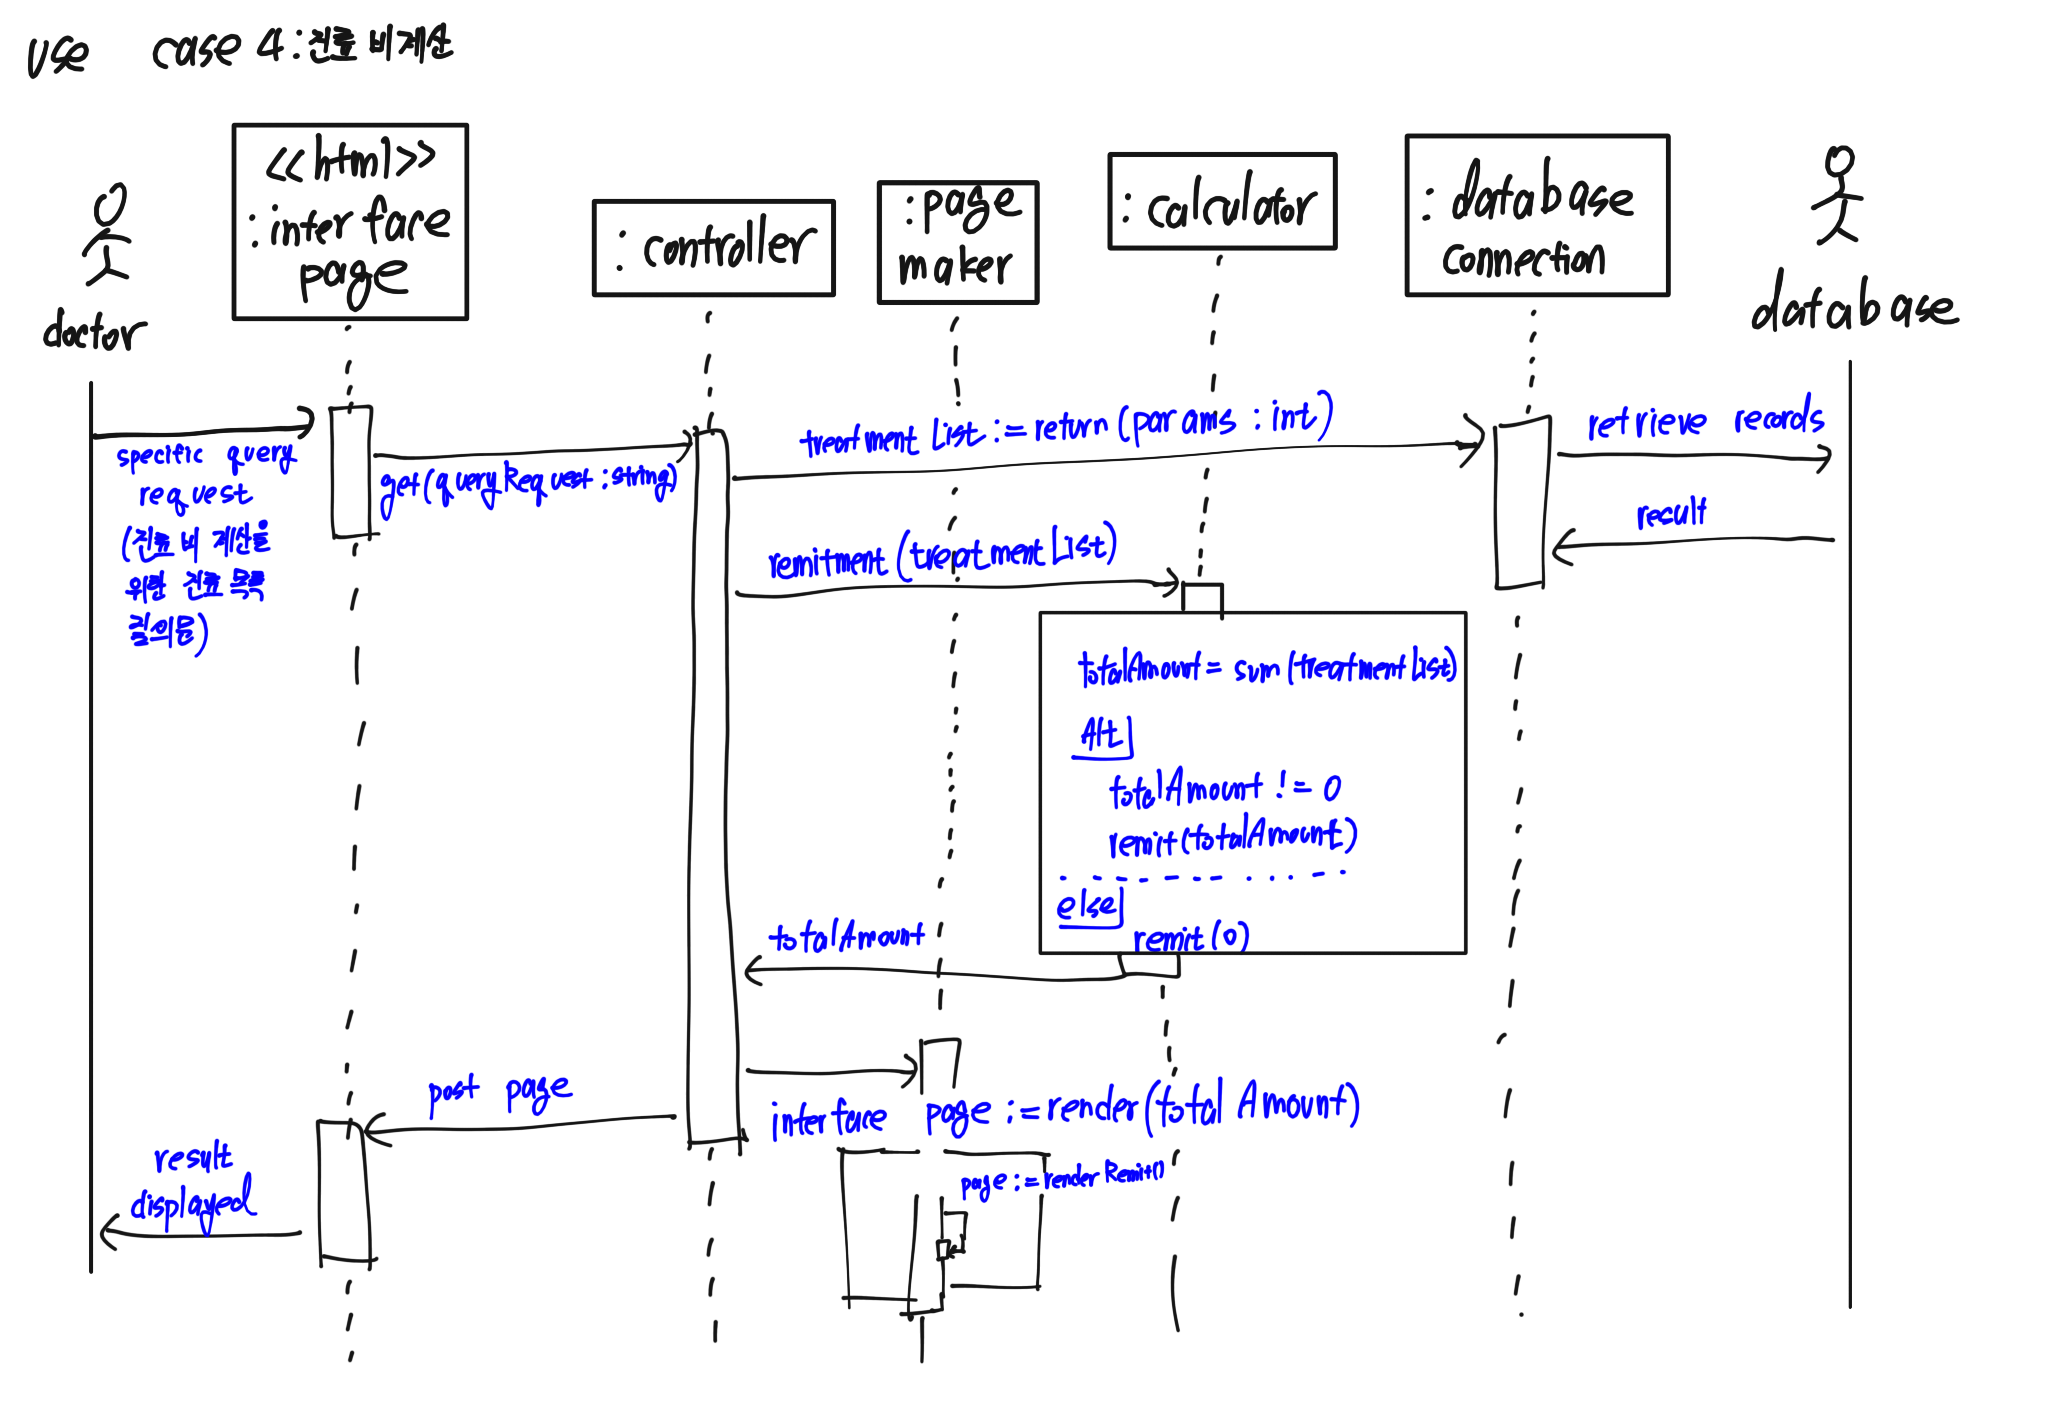 use case 4 : 진료 비 계산
<<html>>
: interface
page
: controller
: page
maker
: calculator
: database
connection
doctor
database
specific query
request
(진료 비 계산을
위한 진료 목록
질의문)
get(queryRequest : string)
treatment List := return (params : int)
retrieve records
result
remitment (treatmentList)
totalAmount = sum (treatmentList)
Alt
totalAmount != 0
remit(totalAmount)
else
remit (0)
totalAmount
interface page := render(total Amount)
post page
page := render Remit()
result
displayed